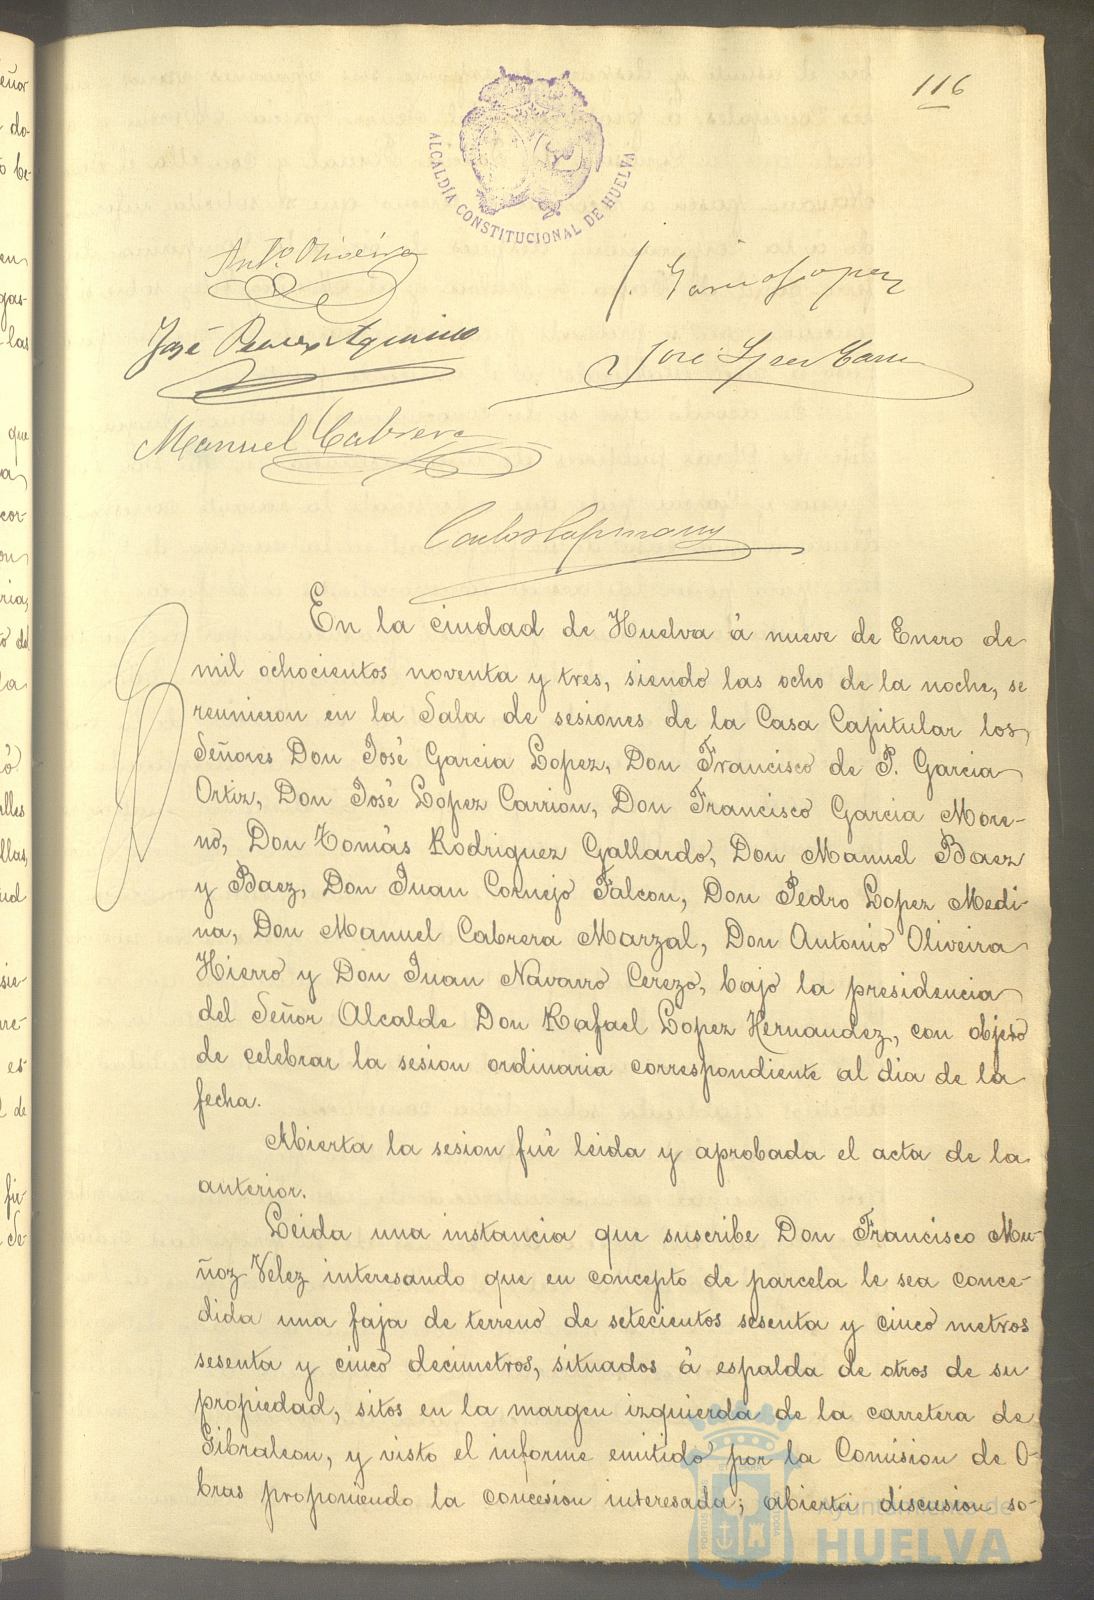 116
ALCALDÍA CONSTITUCIONAL DE HUELVA
Antº Oliveira
J. Garcia Lopez
José
José Lopez Carrion
Manuel Cabrera
Carlos Capmany
En la ciudad de Huelva á nueve de Enero de
mil ochocientos noventa y tres, siendo las ocho de la noche, se
reunieron en la Sala de sesiones de la Casa Capitular los
Señores Don José Garcia Lopez, Don Francisco de P. Garcia
Ortiz, Don José Lopez Carrion, Don Francisco Garcia More-
no, Don Tomás Rodriguez Gallardo, Don Manuel Baez
y Baez, Don Juan Cornejo Falcon, Don Pedro Lopez Medi-
na, Don Manuel Cabrera Marzal, Don Antonio Oliveira
Hierro y Don Juan Navarro Cerezo, bajo la presidencia
del Señor Alcalde Don Rafael Lopez Hernandez, con objeto
de celebrar la sesion ordinaria correspondiente al dia de la
fecha.
Abierta la sesion fué leida y aprobada el acta de la
anterior.
Leida una instancia que suscribe Don Francisco Mu-
ñoz Velez interesando que en concepto de parcela le sea conce-
dida una faja de terreno de setecientos sesenta y cinco metros
sesenta y cinco decimetros, situados á espalda de otros de su
propiedad, sitos en la margen izquierda de la carretera de
Gibraleon, y visto el informe emitido por la Comision de O-
bras proponiendo la concesion interesada; abierta discusion so-
Ayuntamiento de
HUELVA